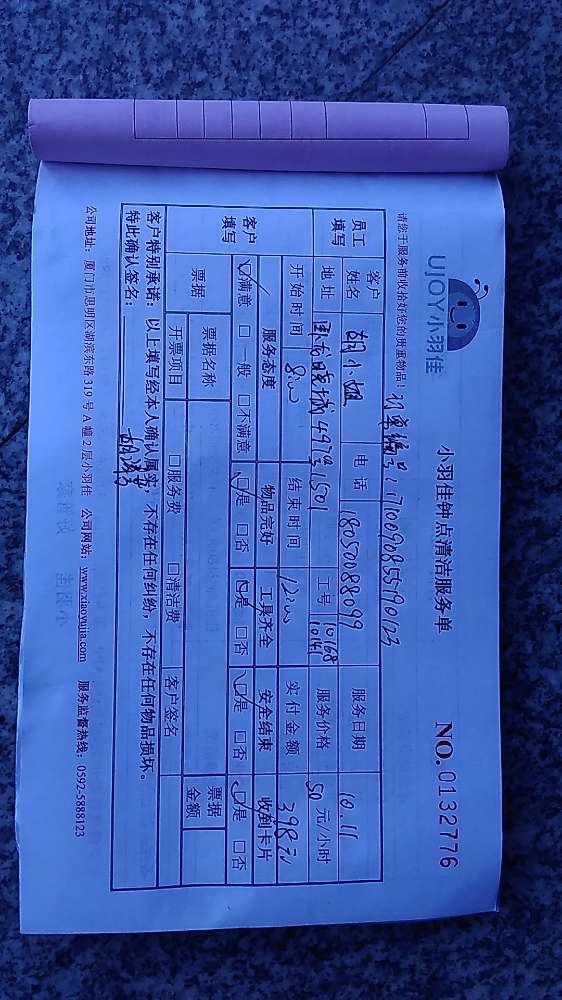 UJOY小羽佳
小羽佳钟点清洁服务单
NO.0132776
请您于服务前收拾好您的贵重物品!
订单编号:1710090855790123
员工填写
客户姓名 胡小姐 电话 18050088099 服务日期 10.11
地址 卧龙晓城497号1501 工号 10168 10141 服务价格 50元/小时
客户填写
开始时间 8:00 结束时间 12:00 实付金额 398元
服务态度 物品完好 工具齐全 安全结束 收到卡片
☑满意 □一般 □不满意 ☑是 □否 ☑是 □否 ☑是 □否 ☑是 □否
票据 票据名称 票据金额
开票项目 □服务费 □清洁费 客户签名
客户特别承诺:以上填写经本人确认属实,不存在任何纠纷,不存在任何物品损坏。
特此确认签名:
公司地址:厦门市思明区湖滨东路319号A幢2层小羽佳 公司网站:www.xiaoyujia.com 服务监督热线:0592-5888123